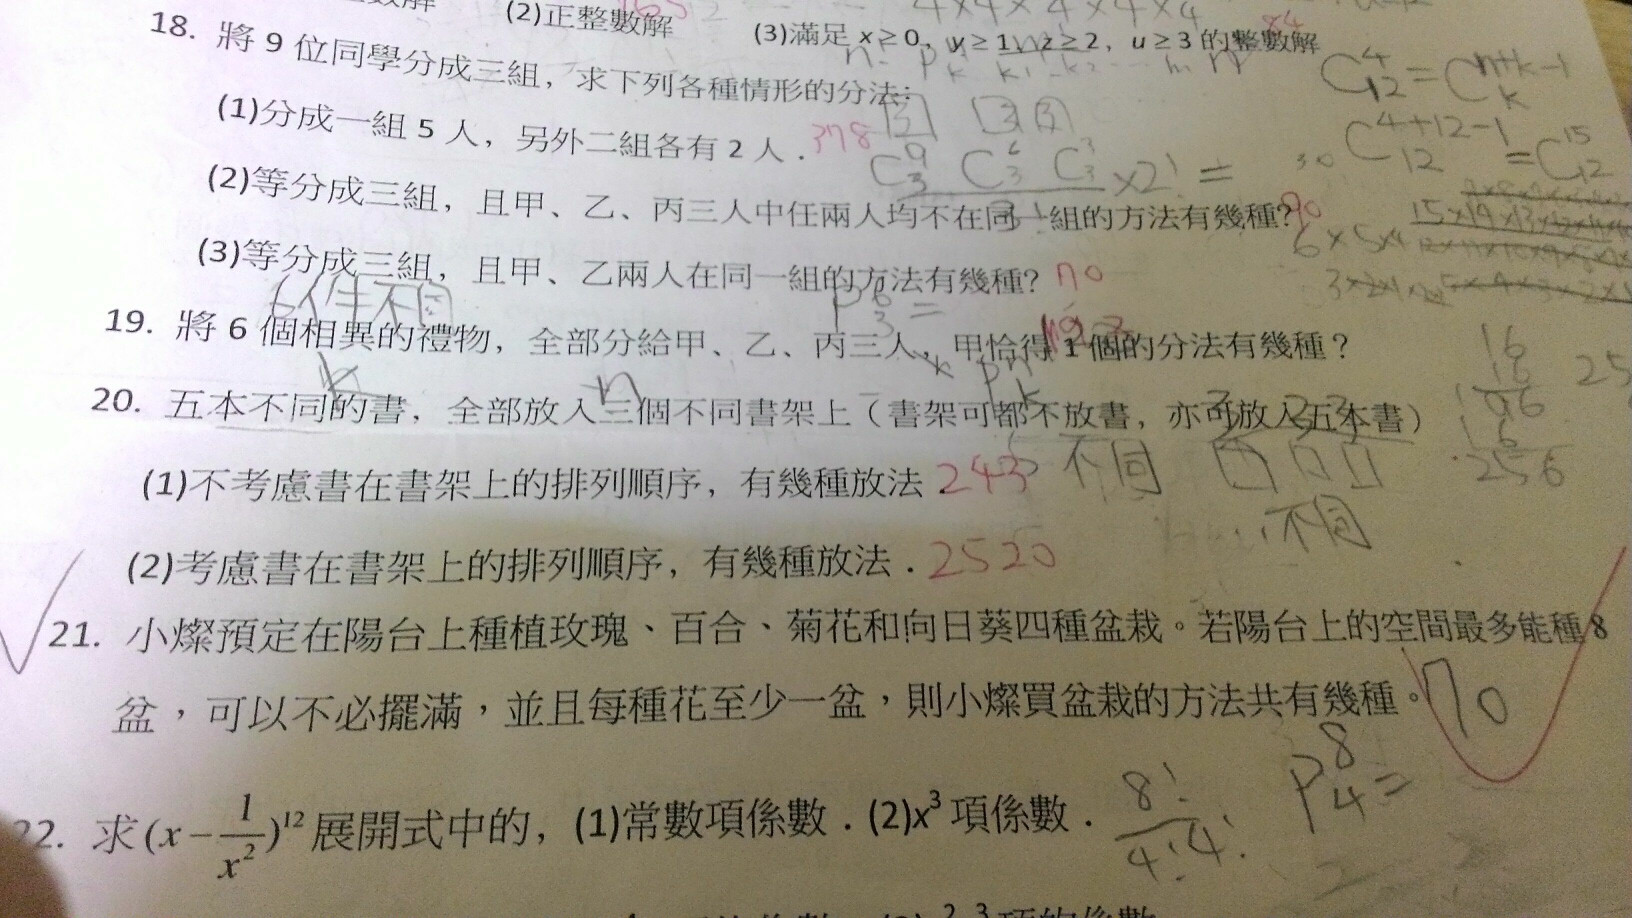 (2)正整數解
(3)滿足 x≥0, y≥1, z≥2, u≥3 的整數解
18. 將 9 位同學分成三組, 求下列各種情形的分法:
(1)分成一組 5 人, 另外二組各有 2 人. 378
(2)等分成三組, 且甲、乙、丙三人中任兩人均不在同一組的方法有幾種? 90
(3)等分成三組, 且甲、乙兩人在同一組的方法有幾種? 70
19. 將 6 個相異的禮物, 全部分給甲、乙、丙三人, 甲恰得 1 個的分法有幾種?
20. 五本不同的書, 全部放入三個不同書架上(書架可都不放書, 亦可放入五本書)
(1)不考慮書在書架上的排列順序, 有幾種放法. 243
不同
不同
(2)考慮書在書架上的排列順序, 有幾種放法. 2520
21. 小燦預定在陽台上種植玫瑰、百合、菊花和向日葵四種盆栽。若陽台上的空間最多能種 8
盆,可以不必擺滿,並且每種花至少一盆,則小燦買盆栽的方法共有幾種。70
22. 求 (x − 1/x²)¹² 展開式中的, (1)常數項係數. (2)x³ 項係數.
8!/4!4!
P⁸₄=
C⁴₁₂=Cⁿ⁺ᵏ⁻¹ₖ
C⁴⁺¹²⁻¹₁₂=C¹⁵₁₂
C⁹₃ C⁶₃ C³₃ ×2! =
P⁶₃=
16
16
96
16
256